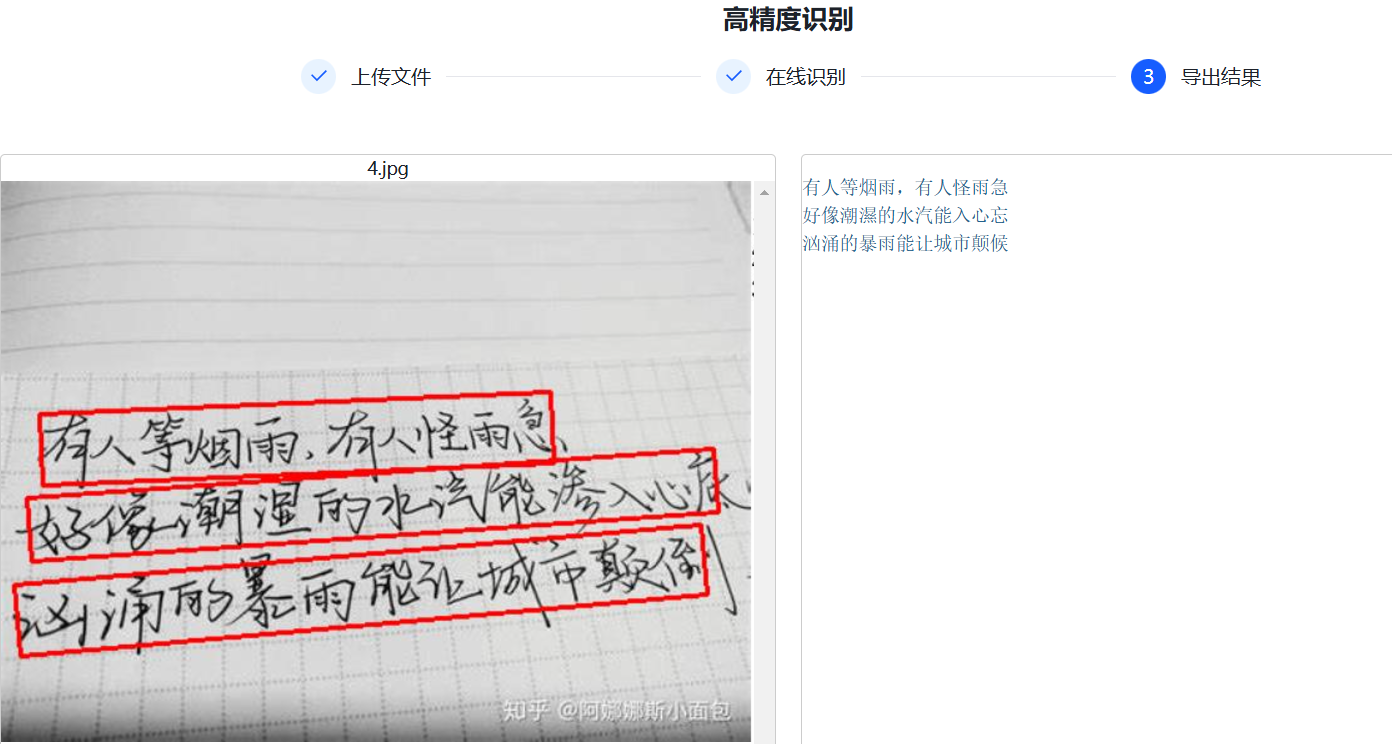 高精度识别
上传文件
在线识别
3 导出结果
4.jpg
有人等烟雨，有人怪雨急、
好像潮湿的水汽能渗入心底
汹涌的暴雨能让城市颠倒
知乎 @阿娜娜斯小面包
有人等烟雨，有人怪雨急
好像潮濕的水汽能入心忘
汹涌的暴雨能让城市颠候